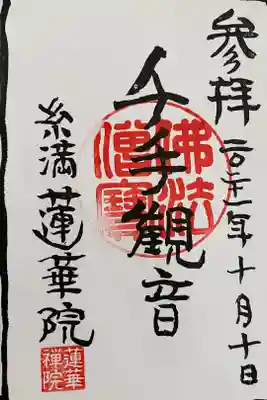 参拝 二〇二一年十月十日
千手觀音
佛法
僧寶
糸満 蓮華院
蓮華
禪院